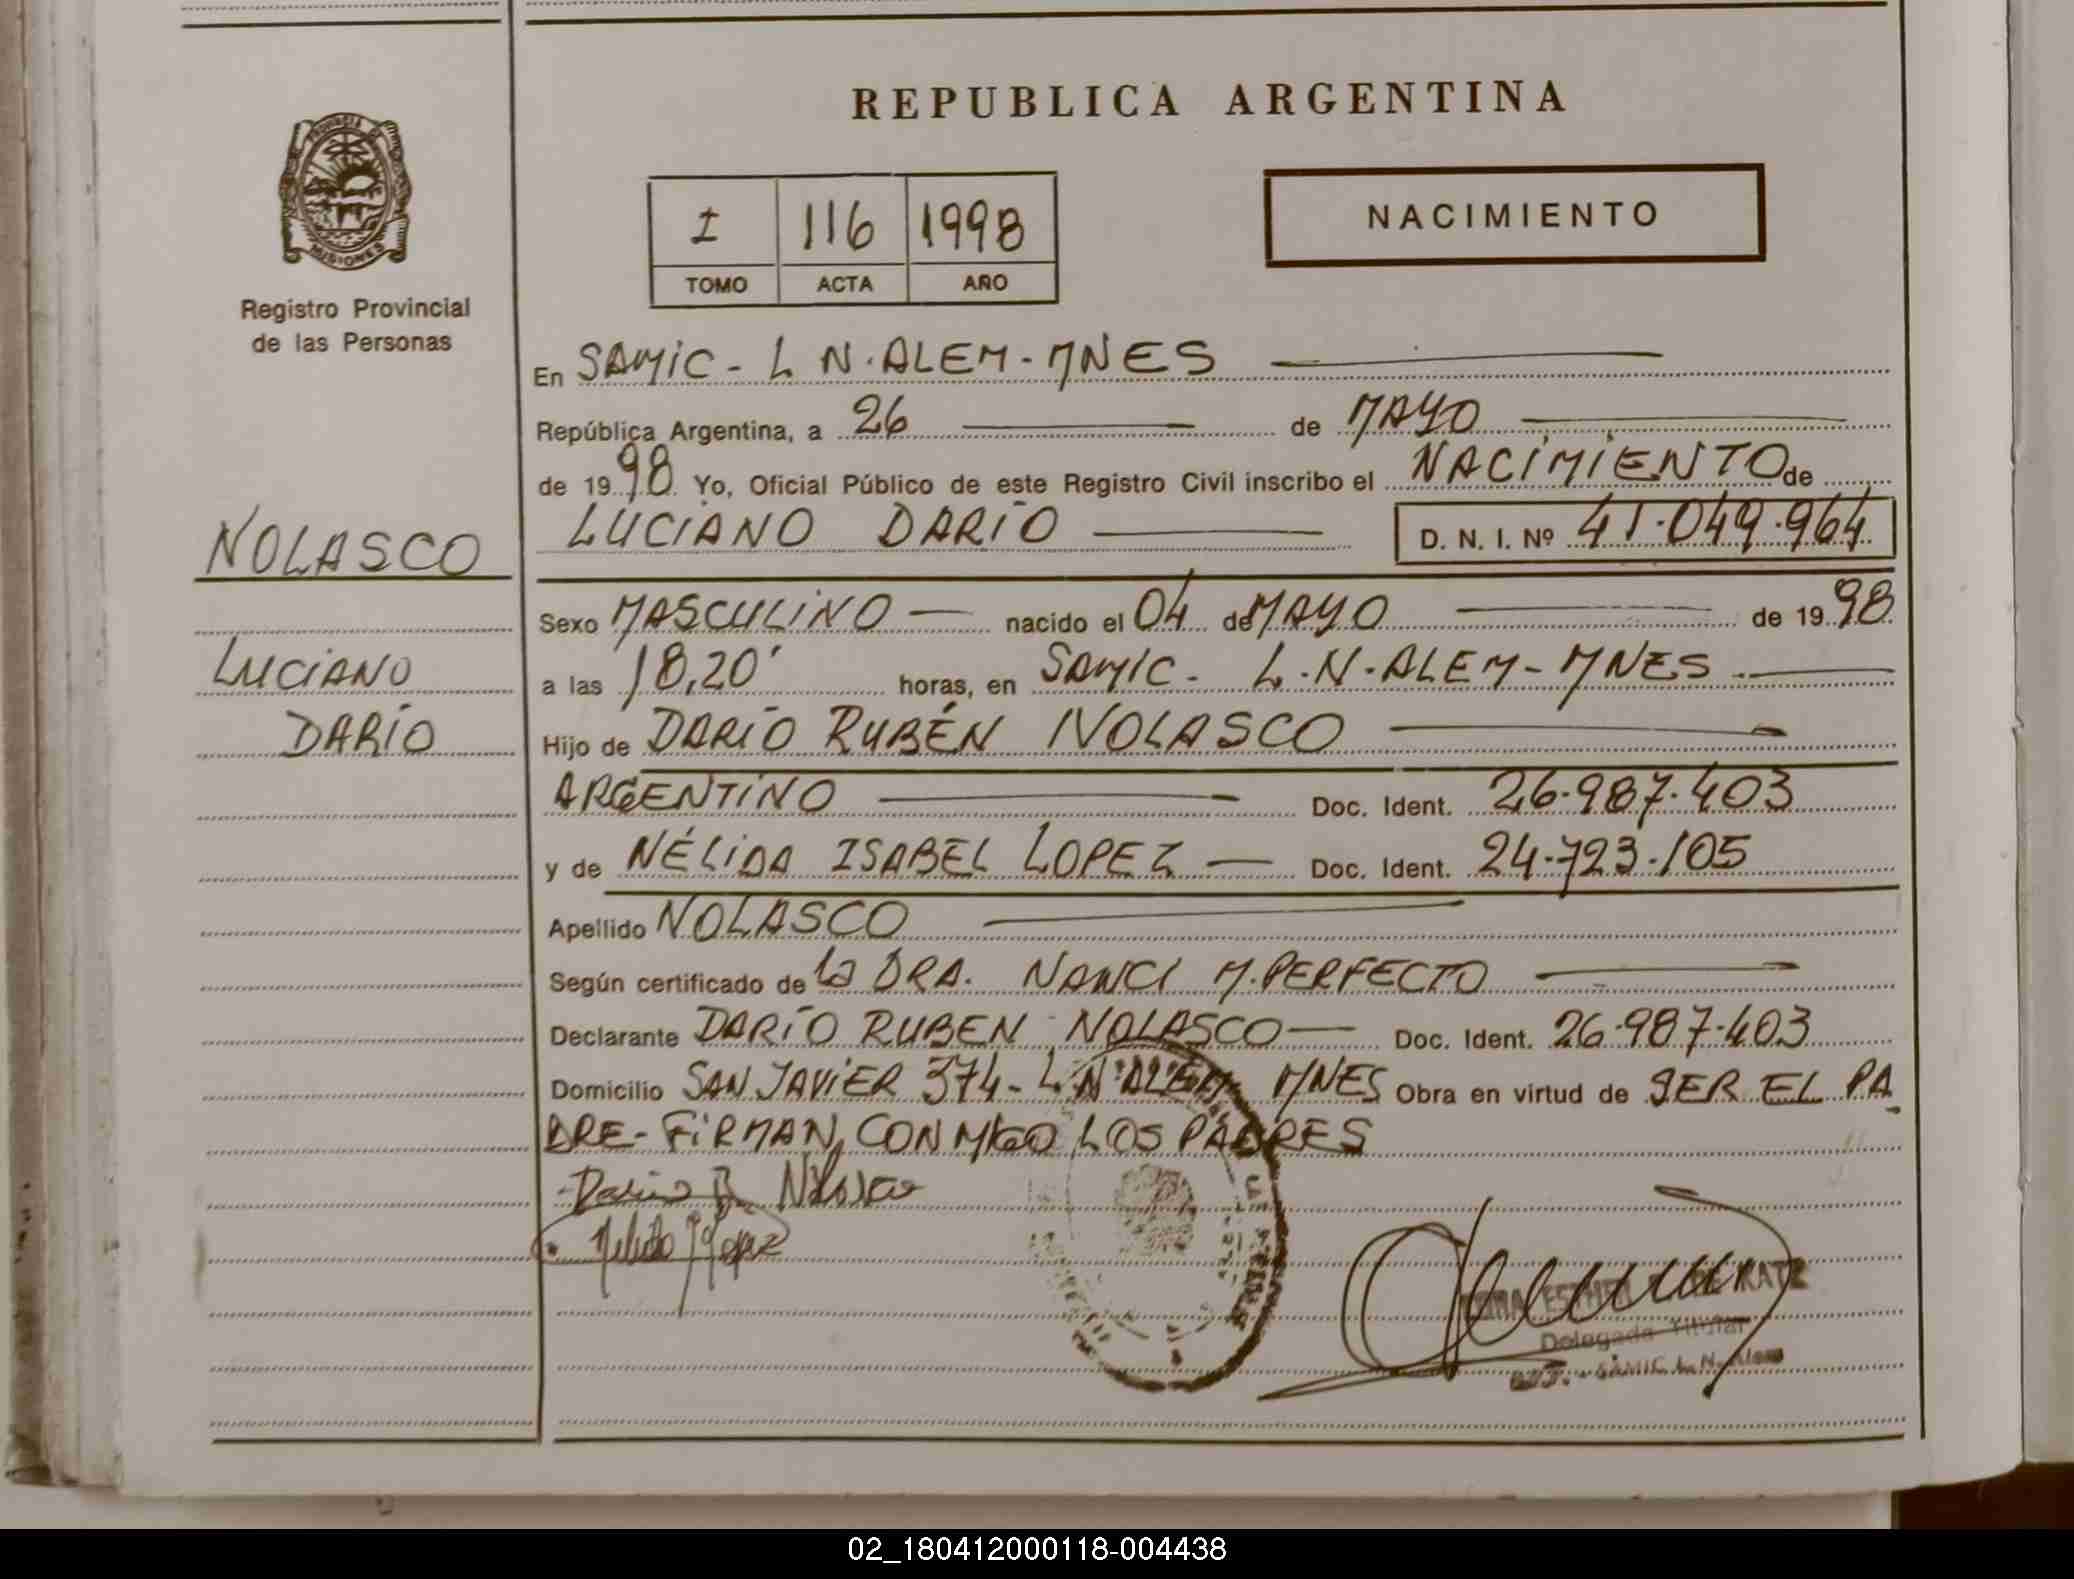 REPUBLICA ARGENTINA
PROVINCIA DE
MISIONES
Registro Provincial
de las Personas
I 116 1998
TOMO ACTA AÑO
NACIMIENTO
En SAMIC - L N. ALEM - MNES
República Argentina, a 26 de MAYO
de 1998 Yo, Oficial Público de este Registro Civil inscribo el NACIMIENTO de
LUCIANO DARIO D. N. I. Nº 41.049.964
NOLASCO
LUCIANO
DARÍO
Sexo MASCULINO nacido el 04 de MAYO de 1998
a las 18,20' horas, en SAMIC - L.N. ALEM - MNES
Hijo de DARÍO RUBÉN NOLASCO
ARGENTINO Doc. Ident. 26.987.403
y de NÉLIDA ISABEL LOPEZ Doc. Ident. 24.723.105
Apellido NOLASCO
Según certificado de la DRA. NANCI M. PERFECTO
Declarante DARÍO RUBEN NOLASCO Doc. Ident. 26.987.403
Domicilio SAN JAVIER 374 - L N. ALEM MNES Obra en virtud de SER EL PA
DRE - FIRMAN CONMIGO LOS PADRES
Dario R. Nolasco
Nelida I Lopez
DE KATZ
Delegada Titular
SAMIC L. N. Alem
02_180412000118-004438